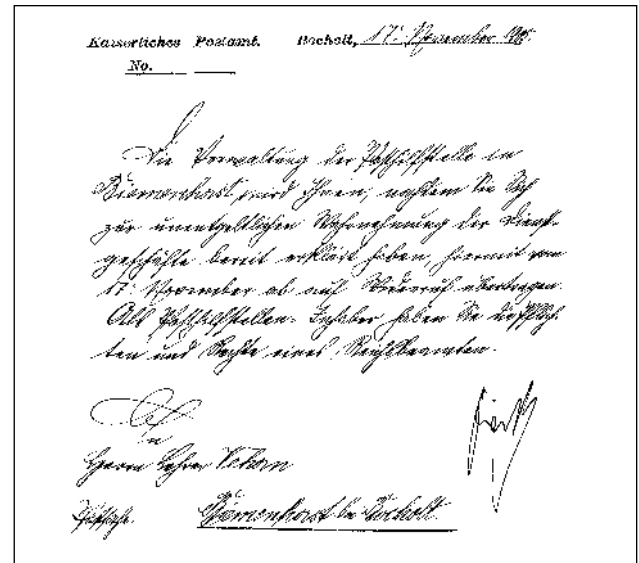 Kaiserliches Postamt. Bocholt, 17. November
No.
Die Verwaltung der Posthilfstelle in
wird Ihnen, nachdem Sie sich
zur unentgeltlichen Wahrnehmung der Dienst-
geschäfte bereit erklärt haben, hiermit vom
17. November ab auf Widerruf übertragen.
Als Posthilfstellen-Inhaber haben Sie die Pflich-
ten und Rechte eines Reichsbeamten.
An
Herrn Lehrer
bei Bocholt.